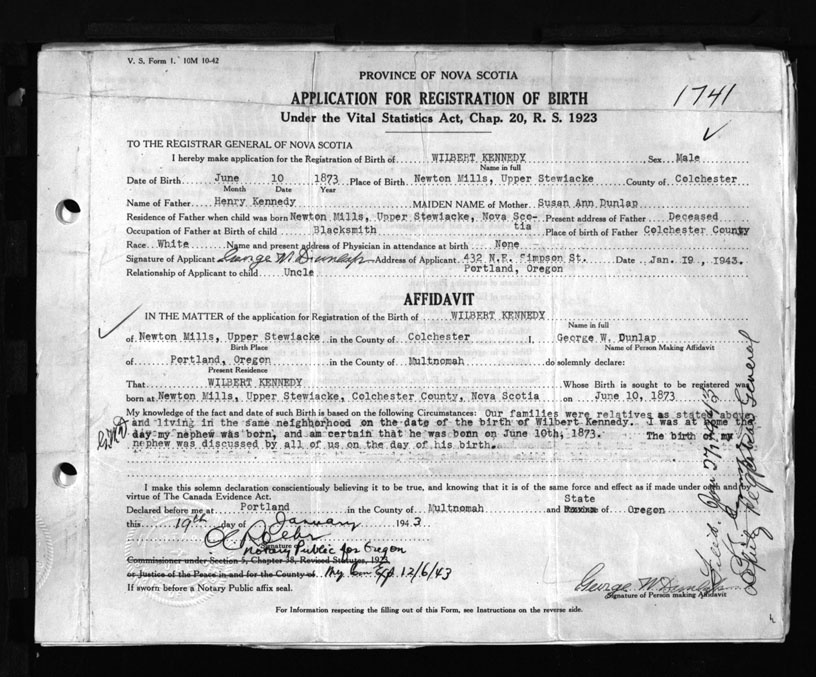 V. S. Form 1. 10M 10-42
PROVINCE OF NOVA SCOTIA
1741
APPLICATION FOR REGISTRATION OF BIRTH
Under the Vital Statistics Act, Chap. 20, R. S. 1923
TO THE REGISTRAR GENERAL OF NOVA SCOTIA
I hereby make application for the Registration of Birth of WILBERT KENNEDY Sex Male
Name in full
Date of Birth June 10 1873 Place of Birth Newton Mills, Upper Stewiacke County of Colchester
Month Date Year
Name of Father Henry Kennedy MAIDEN NAME of Mother Susan Ann Dunlap
Residence of Father when child was born Newton Mills, Upper Stewiacke, Nova Sco- Present address of Father Deceased
tia
Occupation of Father at Birth of child Blacksmith Place of birth of Father Colchester County
Race White Name and present address of Physician in attendance at birth None
Signature of Applicant George W Dunlap Address of Applicant 432 N.E. Simpson St. Date Jan. 19, 1943.
Relationship of Applicant to child Uncle Portland, Oregon
AFFIDAVIT
IN THE MATTER of the application for Registration of the Birth of WILBERT KENNEDY
Name in full
of Newton Mills, Upper Stewiacke in the County of Colchester I, George W. Dunlap
Birth Place Name of Person Making Affidavit
of Portland, Oregon of Multnomah do solemnly declare:
Present Residence
That WILBERT KENNEDY Whose Birth is sought to be registered was
born at Newton Mills, Upper Stewiacke, Colchester County, Nova Scotia on June 10, 1873
My knowledge of the fact and date of such Birth is based on the following Circumstances: Our families were relatives as stated above
and living in the same neighborhood on the date of the birth of Wilbert Kennedy. I was at home the
day my nephew was born, and am certain that he was bonn on June 10th, 1873. The birth of my
nephew was discussed by all of us on the day of his birth.
I make this solemn declaration conscientiously believing it to be true, and knowing that it is of the same force and effect as if made under oath and by
virtue of The Canada Evidence Act.
State
Declared before me at Portland in the County of Multnomah and of Oregon
this 19th day of January 1943
Signature
Notary Public for Oregon
Commissioner under Section 5, Chapter 38, Revised Statutes, 1923
or Justice of the Peace in and for the County of My Com Exp 12/6/43
If sworn before a Notary Public affix seal.
George W Dunlap
Signature of Person making Affidavit
For Information respecting the filling out of this Form, see Instructions on the reverse side.
Filed Jan 27
Deputy Registrar General